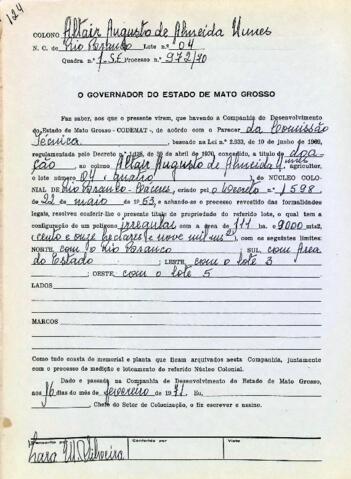 124
COLONO Altair Augusto de Almeida Nunes
N. C. de Rio Branco Lote n.º 04
Quadra n.º 7. S.E Processo n.º 972/70
O GOVERNADOR DO ESTADO DE MATO GROSSO
Faz saber, aos que o presente virem, que havendo a Companhia de Desenvolvimento
do Estado de Mato Grosso - CODEMAT-, de acôrdo com o Parecer da Comissão
Técnica, baseado na Lei n.º 2.933, de 19 de junho de 1969,
regulamentada pelo Decreto n.º 1.138, de 30 de abril de 1970, concedido, a título de doa-
ção, ao colono Altair Augusto de Almeida Nunes, agricultor,
o lote número 04 (quatro), do NÚCLEO COLO-
NIAL DE Rio Branco - Cáceres, criado pelo Decreto n.º 1598,
de 22 de maio de 1953, e achando-se o processo revestido das formalidades
legais, resolveu conferir-lhe o presente título de propriedade do referido lote, o qual tem a
configuração de um polígono irregular com a área de 111 ha. e 9000 mts2,
(cento e onze hectares e nove mil ms2), com os seguintes limites:
NORTE, com o Rio Branco; SUL, com Área
do Estado; LESTE, com o lote 3
; OESTE, com o lote 5
LADOS
MARCOS
Como tudo consta do memorial e planta que ficam arquivados nesta Companhia, juntamente
com o processo de medição e loteamento do referido Núcleo Colonial.
Dado e passado na Companhia de Desenvolvimento do Estado de Mato Grosso,
aos 16 dias do mês de fevereiro de 1971. Eu,
Chefe do Setor de Colonização, o fiz escrever e assino.
Transcrito por Conferido por Visto